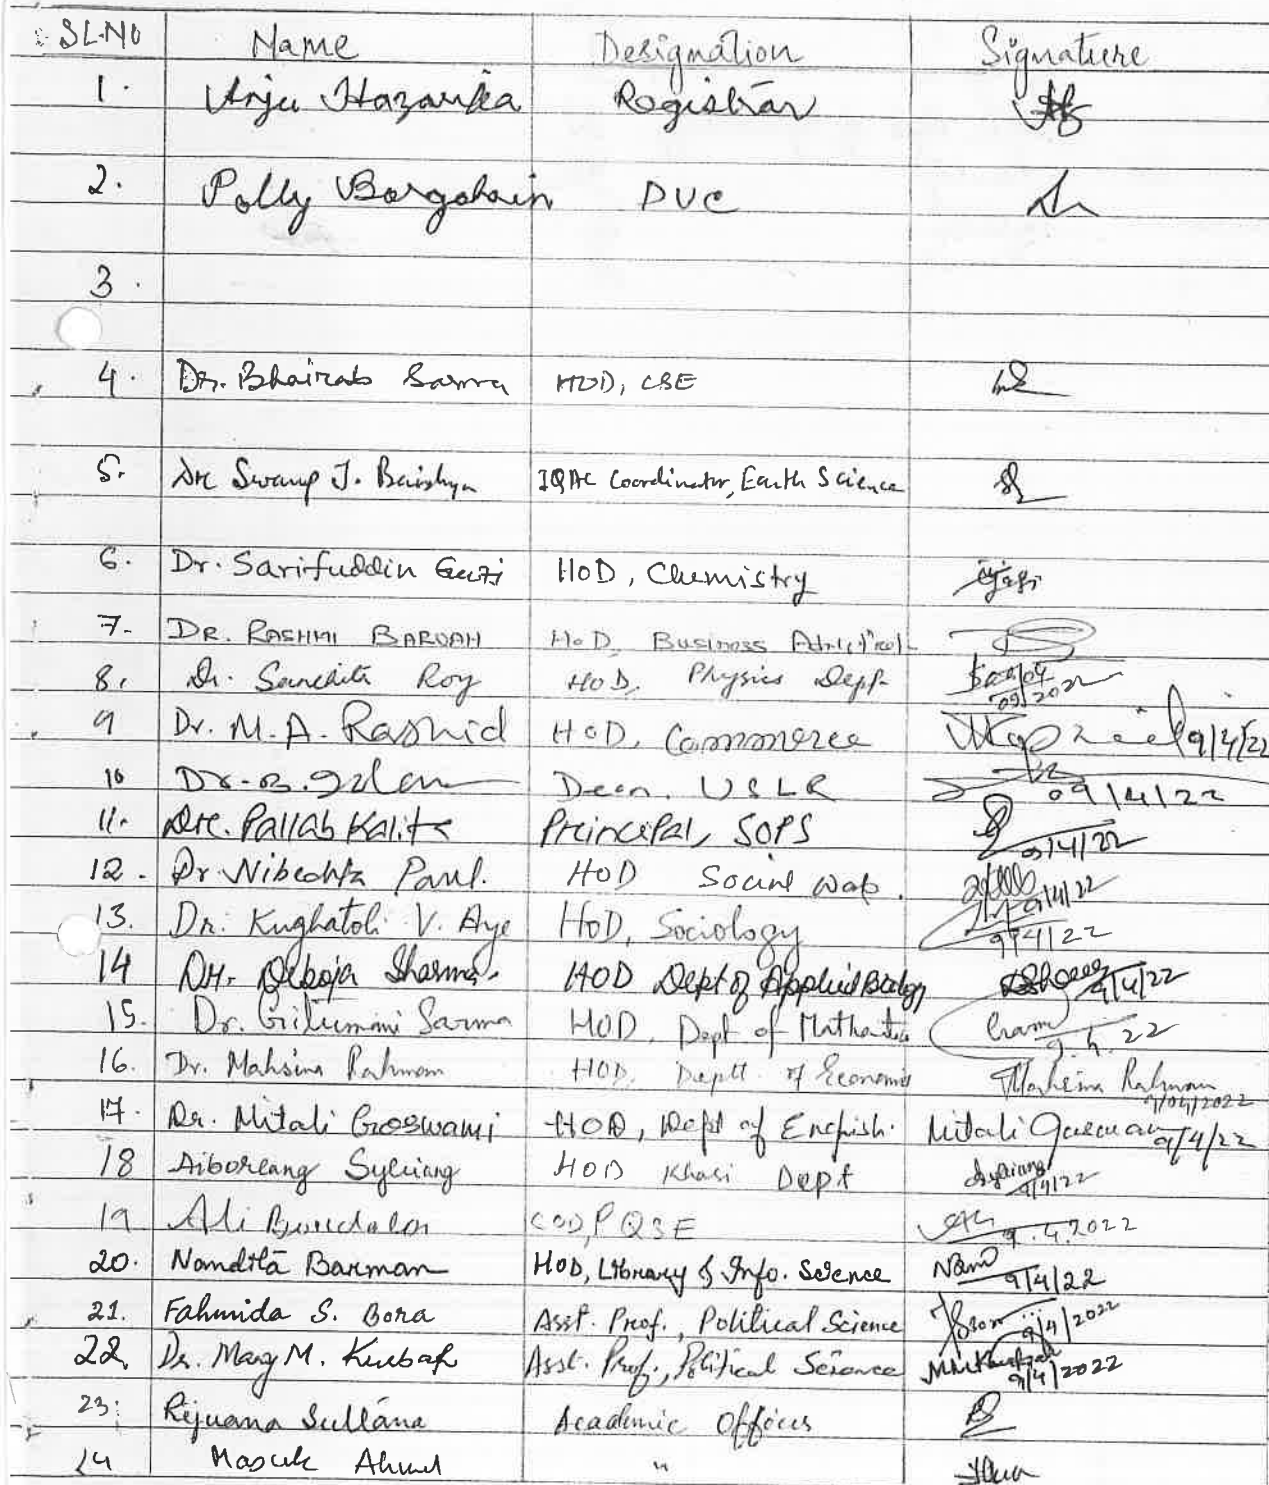 SL.NO Name Designation Signature
1. Anju Hazarika Registrar
2. Polly Borgohain DVC
3.
4. Dr. Bhairab Sarma HOD, CSE
5. Dr Swarup J. Baishya IQAC Coordinator, Earth Science
6. Dr. Sarifuddin Gazi HOD, Chemistry
7. DR. RASHMI BARUAH HoD, Business
8. Dr. Sanchita Roy HOD, Physics Dept. 09/04/2022
9 Dr. M. A. Rashid HOD, Commerce 9/4/22
10 Dr. B. Dean, USLR 09/4/22
11. Dr. Pallab Kalita Principal, SOPS 9/4/22
12. Dr Nibedita Paul. HOD Social 9/4/22
13. Dr. Kughatoli V. Aye HoD, Sociology 9/4/22
14 Dr. Deboja Sharma. HOD Dept of Applied Biology 9/4/22
15. Dr. Gitumani Sarma HOD, Dept of 9.4.22
16. Dr. Mahsina Rahman HOD, Deptt. of Mahsina Rahman 9/04/2022
17. Dr. Mitali Goswami HOD, Dept of English. Mitali Goswami 9/4/22
18 Aiboreang Syliang HOD Khasi Dept 9/4/22
19 Ali 9.4.2022
20. Nandita Barman HOD, Library & Info. Science 9/4/22
21. Fahmida S. Bora Asst. Prof., Political Science 9/4/2022
22. Dr. Mary M. Asst. Prof., Political Science 9/4/2022
23. Rijuana Sultana Academic Officer
24 Masuk Ahmed "